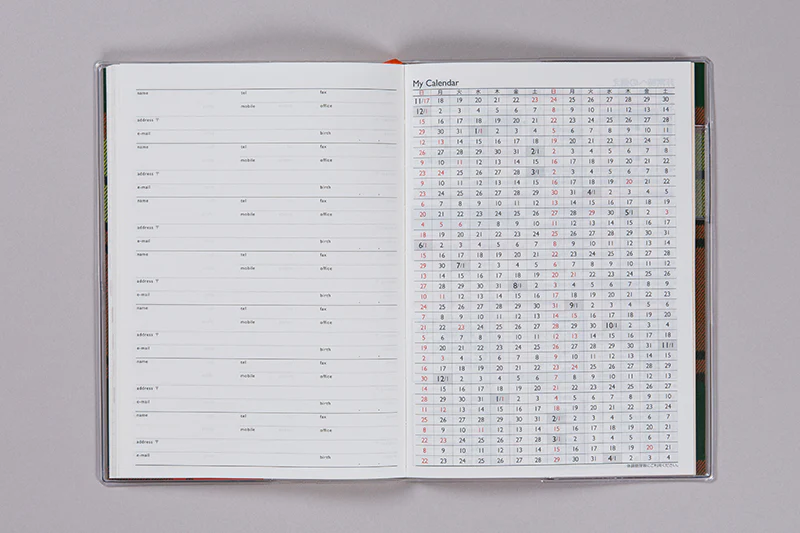 name tel fax
mobile office
address 〒
e-mail birth
name tel fax
mobile office
address 〒
e-mail birth
name tel fax
mobile office
address 〒
e-mail birth
name tel fax
mobile office
address 〒
e-mail birth
name tel fax
mobile office
address 〒
e-mail birth
name tel fax
mobile office
address 〒
e-mail birth
name tel fax
mobile office
address 〒
e-mail birth
My Calendar
日 月 火 水 木 金 土 日 月 火 水 木 金 土
11/17 18 19 20 21 22 23 24 25 26 27 28 29 30
12/1 2 3 4 5 6 7 8 9 10 11 12 13 14
15 16 17 18 19 20 21 22 23 24 25 26 27 28
29 30 31 1/1 2 3 4 5 6 7 8 9 10 11
12 13 14 15 16 17 18 19 20 21 22 23 24 25
26 27 28 29 30 31 2/1 2 3 4 5 6 7 8
9 10 11 12 13 14 15 16 17 18 19 20 21 22
23 24 25 26 27 28 3/1 2 3 4 5 6 7 8
9 10 11 12 13 14 15 16 17 18 19 20 21 22
23 24 25 26 27 28 29 30 31 4/1 2 3 4 5
6 7 8 9 10 11 12 13 14 15 16 17 18 19
20 21 22 23 24 25 26 27 28 29 30 5/1 2 3
4 5 6 7 8 9 10 11 12 13 14 15 16 17
18 19 20 21 22 23 24 25 26 27 28 29 30 31
6/1 2 3 4 5 6 7 8 9 10 11 12 13 14
15 16 17 18 19 20 21 22 23 24 25 26 27 28
29 30 7/1 2 3 4 5 6 7 8 9 10 11 12
13 14 15 16 17 18 19 20 21 22 23 24 25 26
27 28 29 30 31 8/1 2 3 4 5 6 7 8 9
10 11 12 13 14 15 16 17 18 19 20 21 22 23
24 25 26 27 28 29 30 31 9/1 2 3 4 5 6
7 8 9 10 11 12 13 14 15 16 17 18 19 20
21 22 23 24 25 26 27 28 29 30 10/1 2 3 4
5 6 7 8 9 10 11 12 13 14 15 16 17 18
19 20 21 22 23 24 25 26 27 28 29 30 31 11/1
2 3 4 5 6 7 8 9 10 11 12 13 14 15
16 17 18 19 20 21 22 23 24 25 26 27 28 29
30 12/1 2 3 4 5 6 7 8 9 10 11 12 13
14 15 16 17 18 19 20 21 22 23 24 25 26 27
28 29 30 31 1/1 2 3 4 5 6 7 8 9 10
11 12 13 14 15 16 17 18 19 20 21 22 23 24
25 26 27 28 29 30 31 2/1 2 3 4 5 6 7
8 9 10 11 12 13 14 15 16 17 18 19 20 21
22 23 24 25 26 27 28 3/1 2 3 4 5 6 7
8 9 10 11 12 13 14 15 16 17 18 19 20 21
22 23 24 25 26 27 28 29 30 31 4/1 2 3 4
体調管理等にご利用ください。